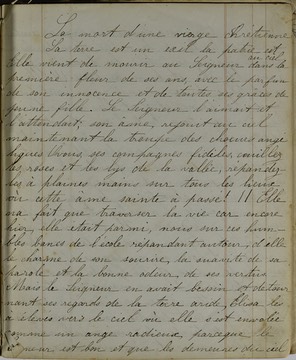 La mort d'une vierge Chrétienne
La terre est un exil la patrie est
au ciel
Elle vient de mourir au Seigneur dans la
première fleur de ses ans, avec le parfum
de son innocence et de toutes ses grâces de
jeune fille. Le Seigneur l'aimait et
l'attendait, son âme, rejoint au ciel
maintenant la troupe des choeurs angé
liques Vous, ses compagnes fidèles, cueillez
les roses et les lys de la vallée, répandez
les à pleines mains sur tous les lieux
où cette âme sainte à passé! !! Elle
n'a fait que traverser la vie car encore
hier, elle était parmi, nous sur ces hum
bles bancs de l'école répandant autour, d'elle
le charme de son sourire, la suavité de sa
parole et la bonne odeur, de ses vertus
Mais le Seigneur en avait besoin et détour
nant ses regards de la terre aride, Elisa les
a élevés vers le ciel où elle s'est envolée
comme un ange radieux parceque le
Seigneur est bon et que les demeures du ciel